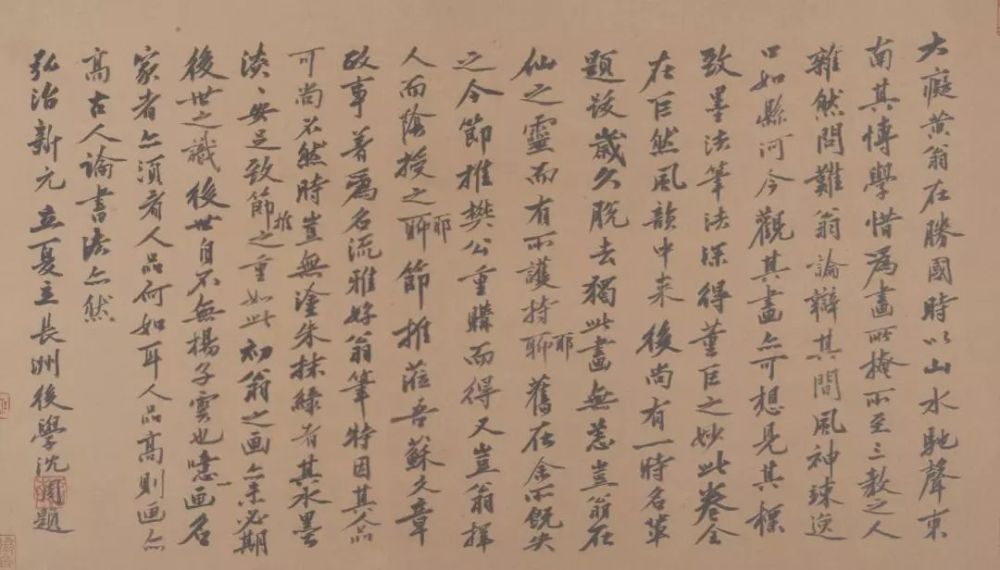 大癡黄翁在勝國時以山水馳聲東
南其博學惜為畫所掩所至三教之人
雜然問難翁論辯其間風神竦逸
口如縣河今觀其畫亦可想見其標
致墨法筆法深得董巨之妙此卷全
在巨然風韻中来後尚有一時名輩
題跋歲久脫去獨此畫無恙豈翁在
仙之靈而有所護持聊耶舊在余所既失
之今節推樊公重購而得又豈翁擇
人而陰授之聊耶節推蒞吾蘇文章
政事著為名流雅好翁筆特因其人品
可尚不然時豈無塗朱抹綠者其水墨
淡、安足致節推之重如此初翁之画亦未必期
後世之識後世自不無揚子雲也噫画名
家者亦須看人品何如耳人品高則画亦
高古人論書法亦然
弘治新元立夏立長洲後學沈周題